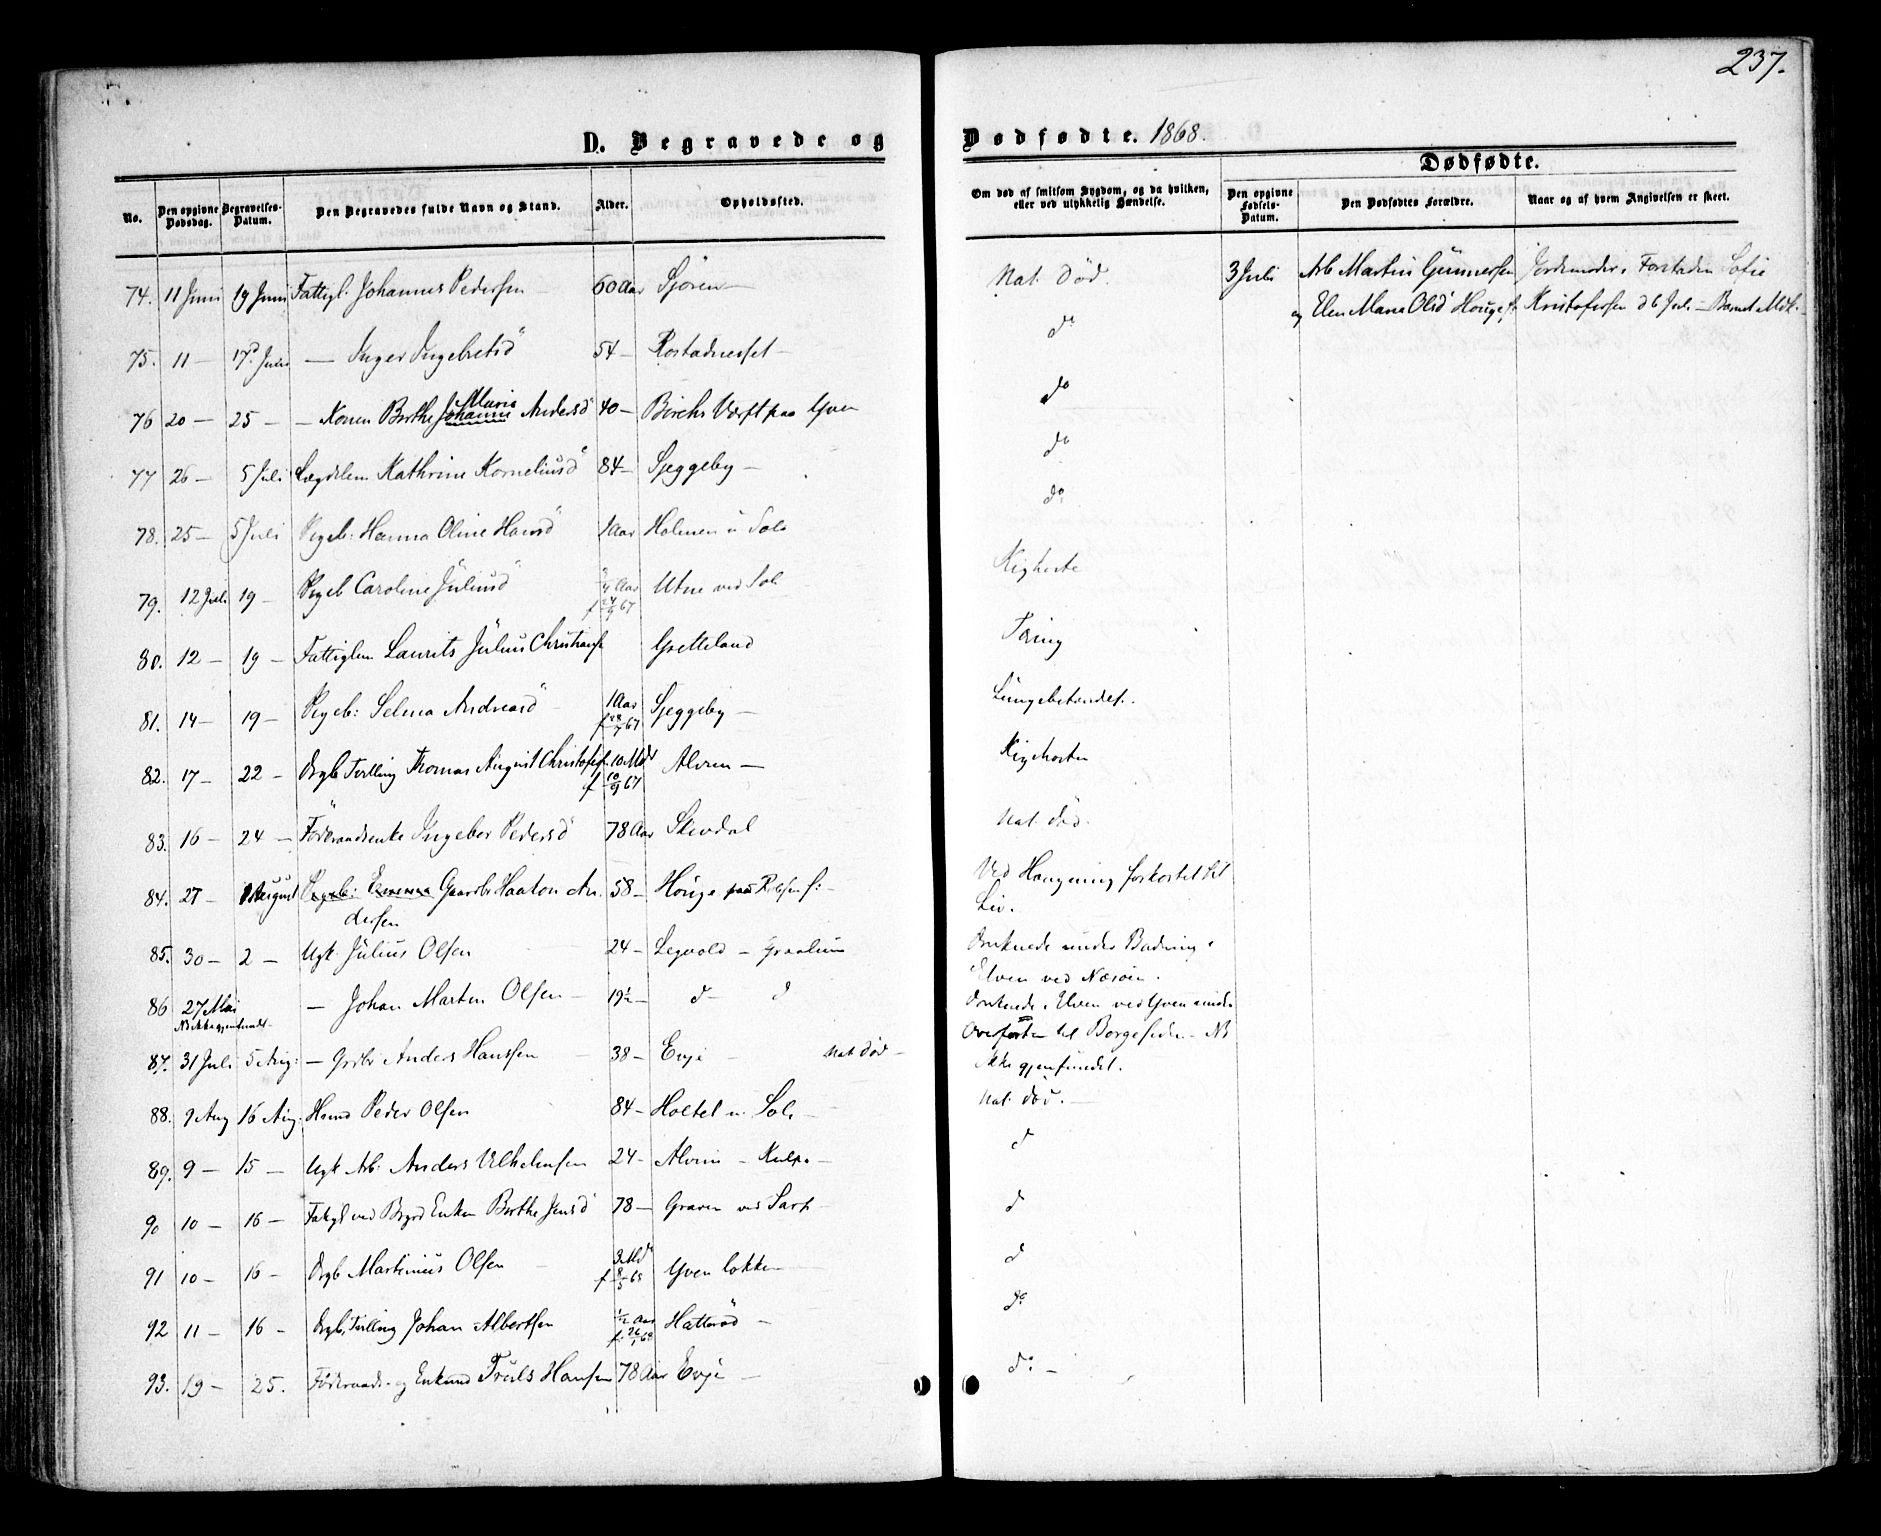 237.
D. Begravede og Dødfødte. 1868.
No. | Den opgivne Dødsdag. | Begravelses-Datum. | Den Begravedes fulde Navn og Stand. | Alder. | Opholdssted. | Om død af smitsom Sygdom, og da hvilken, eller ved ulykkelig Hændelse. | Dødfødte.
Den opgivne Fødsels-Datum. | Den Dødfødtes Forældre. | Naar og af hvem Angivelsen er skeet.
74. 11 Juni 19 Juni Fattigl. Johannes Pedersen 60 Aar Sjøren — Nat. Død. 3 Juli Arb Martin Gunnersen Jordemoder i Forstaden Sofie
og Elen Maria Olsd Houge Kristofersen d 6 Juli —
75. 11 — Juni — Inger Ingebretsd 54 — Rostadnesset — do
76 20 — 25 — — Konen Berthe Johanne Marie Andersd 40 — Borchs Værft paa Yven do
77 26 — 5 Juli Lægdslem Kathrine Korneliusd 84 — Sjeggeby — do
78. 25 — 5 Juli Pigeb: Hanna Oline Hansd 1 Aar Holmen u Sol. do.
79. 12 Juli 19 — Pigeb Caroline Juliusd 3/4 Aar f 24/9 67 Utne ved Sol. Kighoste
80. 12 — 19 — Fattiglem Laurits Julius Christians Gretteland Tæring
81. 14 — 19 — Pigeb: Selma Andreasd 1 Aar f 67 Sjeggeby — Lungebetændels.
82. 17 — 22 — Drgb Tvilling Thomas August Christofers. 10 Md f 10/9 67 Alvim — Kighoste
83. 16 — 24 — Føderaadsenke Ingebor Pedersd 78 Aar Skivdal Nat. død.
84. 27 1 August Pigeb: Emma Gaardbr Haaton An- 58 — Houge Ved Hængning forkortet sit
dersen Liv.
85. 30 — 2 — Ugk. Julius Olsen 24 — Legvold — Graalum Druknede under Badning i
Elven ved Næsøen.
86 27 Mai — Johan Marten Olsen — 19½ — d d Druknede i Elven ved Yven under
NB ikke gjenfundet. Overfarten til Borgesiden — NB
87. 31 Juli 5 Aug: — Grdbr Anders Hanssen — 38 — Evje — Nat død — ikke gjenfundet.
88. 9 Aug 16 Aug. Peder Olsen 84 — Holtet u. Sol. — Nat. død. —
89. 9 — 15 — Ugk Arb: Anders Vilhelmsen 24 — Alvim — Kulp. — d
90 10 — 16 — Fatgl ved Enken Berthe Jensd 78 — Graven ved Sarp — d
91 10 — 16 — Drgb Martinius Olsen 3 Md f 8/5 68 Yven løkken d
92 11 — 16 — Drgb. Tvilling Johan Albertsen ½ Aar f. 26/1 68 Hatterød — do
93. 19 — 25. Føderaads- og Enkemd Truls Hansen 78 Aar Evje — do —